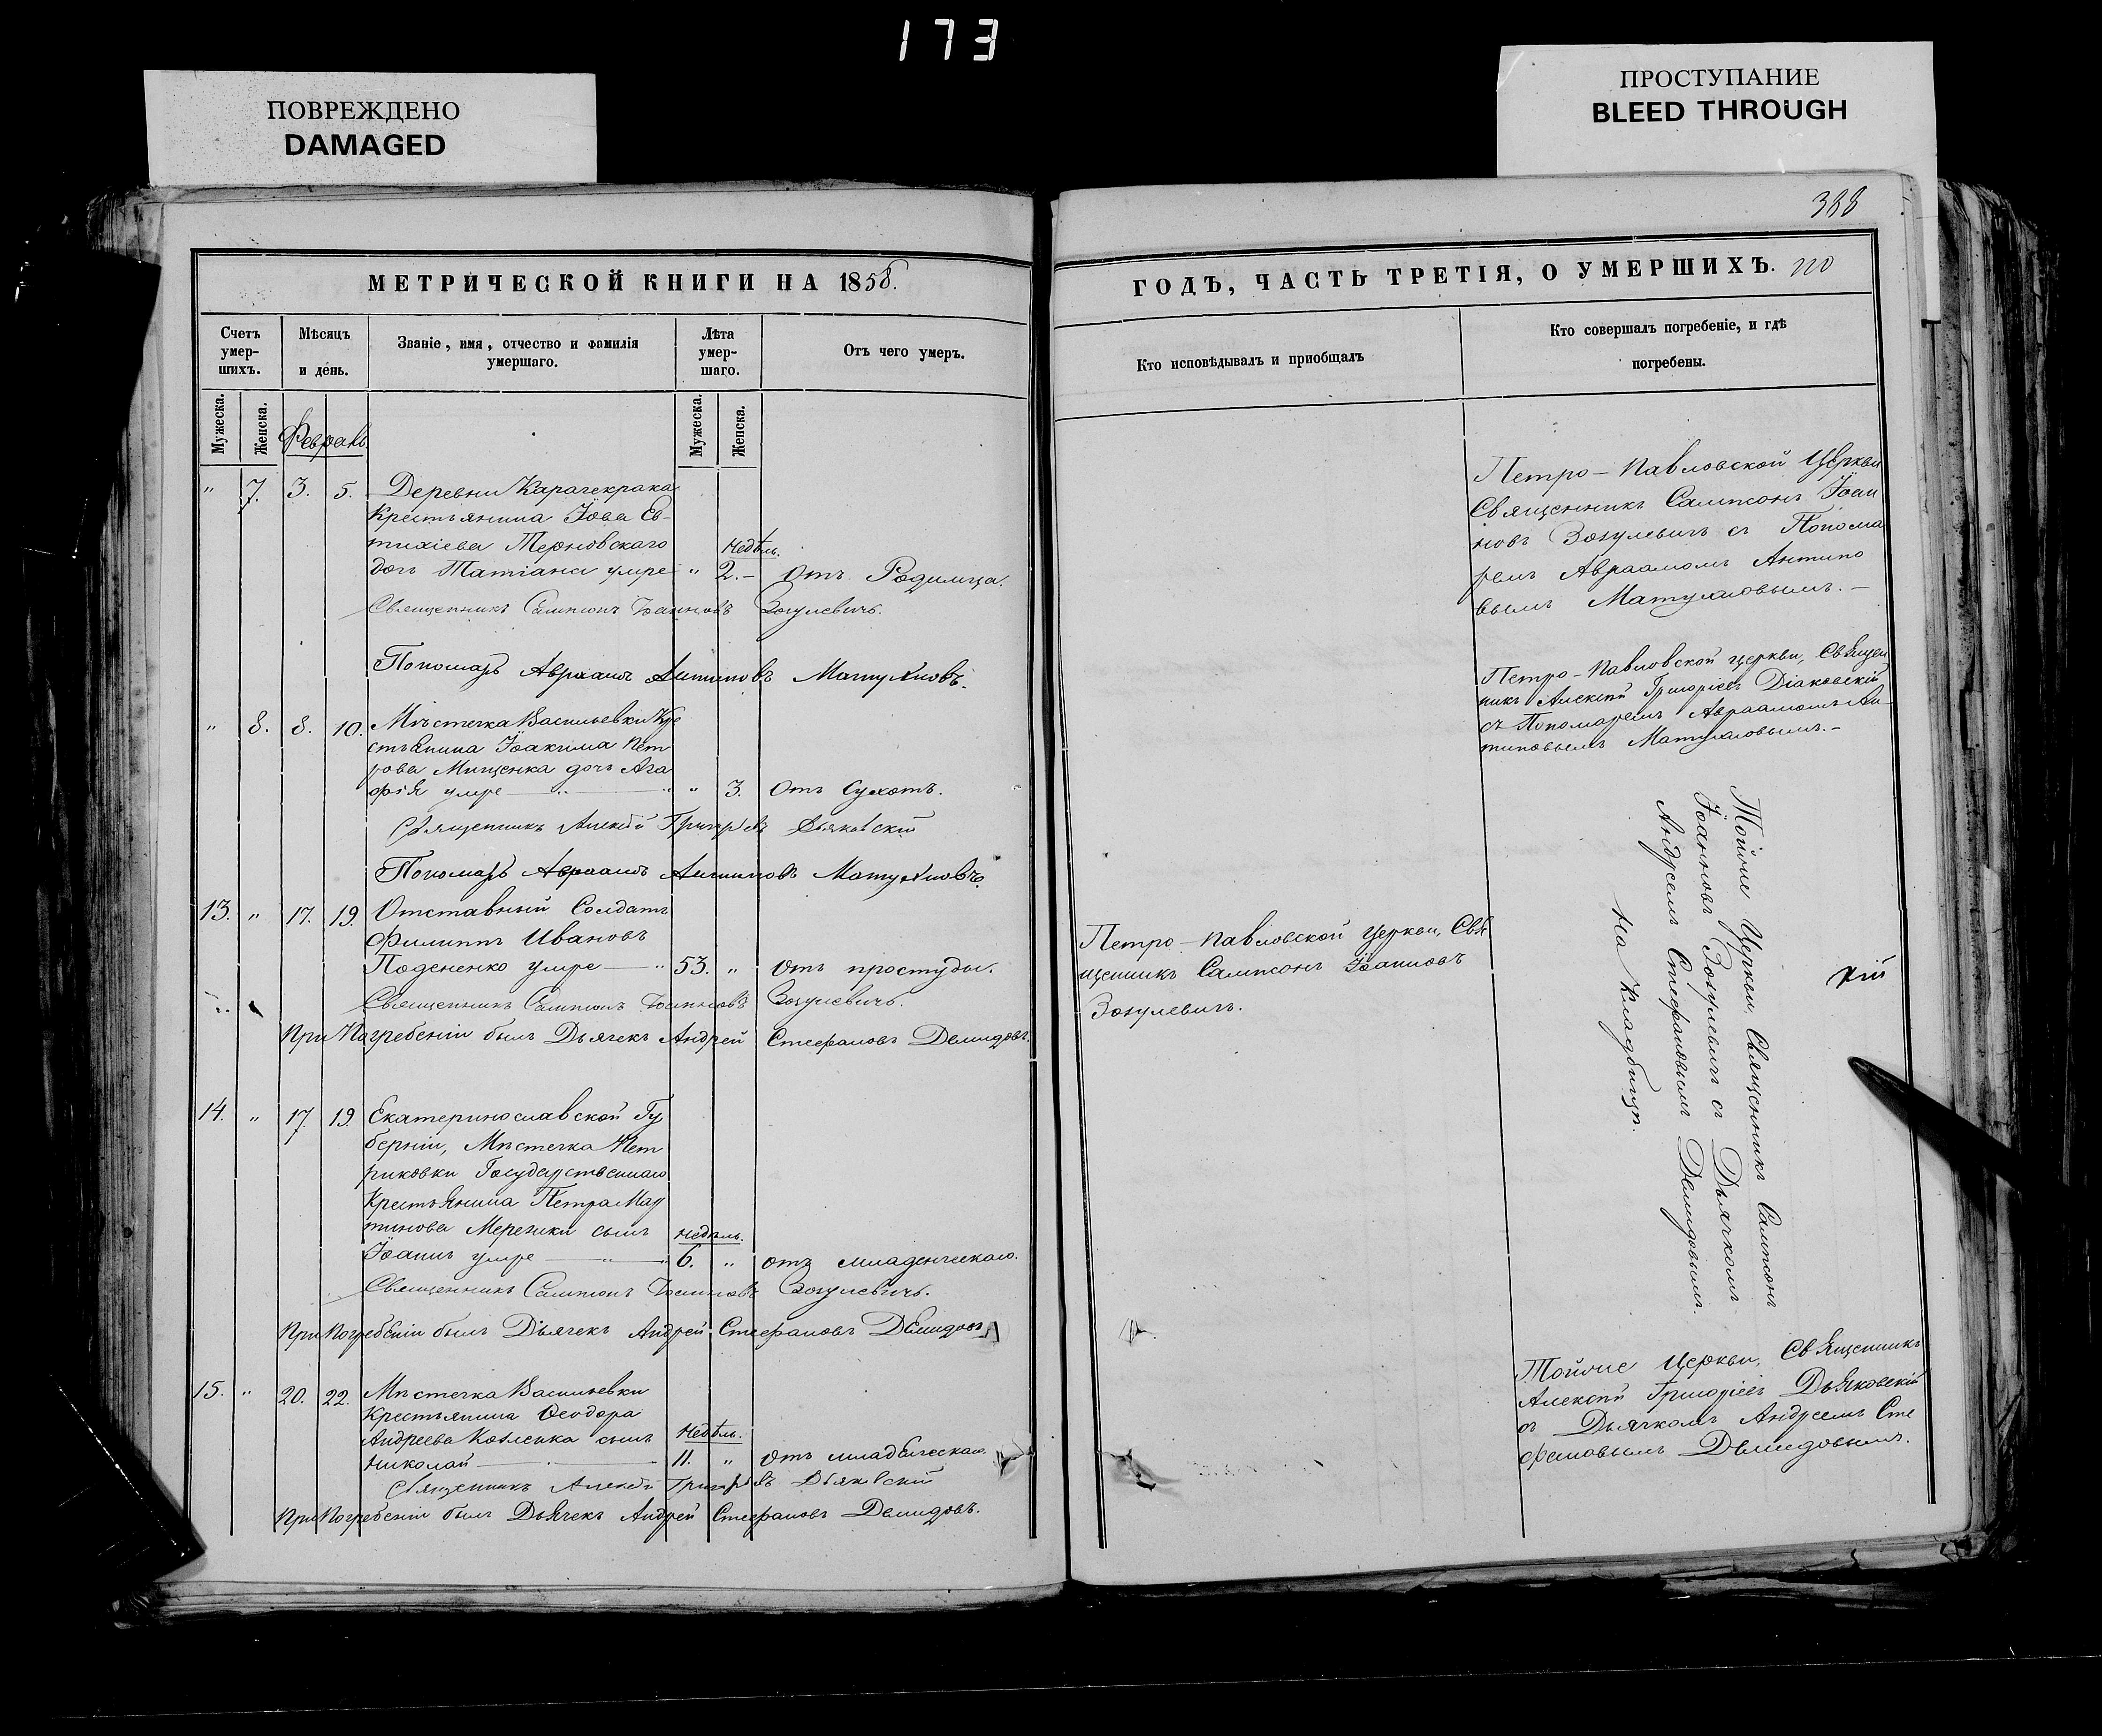 173
ПОВРЕЖДЕНО
DAMAGED
ПРОСТУПАНИЕ
BLEED THROUGH
388
МЕТРИЧЕСКОЙ КНИГИ НА 1858.
ГОДЪ, ЧАСТЬ ТРЕТІЯ, О УМЕРШИХЪ.
Счетъ умер-шихъ.
Мѣсяцъ и день.
Званіе, имя, отчество и фамилія умершаго.
Лѣта умер-шаго.
Отъ чего умеръ.
Кто исповѣдывалъ и пріобщалъ
Кто совершалъ погребеніе, и гдѣ
погребены.
Мужеска.
Женска.
Мужеска.
Женска.
Февраль
" 7. 3. 5. Деревни Карачекрака
Крестьянина Іова Ев-
тихіева Терновскаго
недѣль.
дочь Татіана умре " 2.– отъ Родимца.
Священникъ Сампсонъ Іоанновъ Зозулевичъ.
Пономарь Авраамъ Антиповъ Матухновъ.
Петро-Павловской Церкви
Священникъ Сампсонъ Іоан
новъ Зозулевичъ съ Понома
ремъ Авраамомъ Антипо
вымъ Матухновымъ.–
" 8. 8. 10. Мѣстечка Васильевки Кре
стьянина Іоакима Пет
рова Мищенка дочь Ага
фія умре " 3. отъ Сухотъ.
Священникъ Алексѣй Григоріевъ Дьяковскій
Пономарь Авраамъ Антиповъ Матухновъ
Петро-Павловской церкви, Священ
никъ Алексѣй Григоріевъ Діаковскій
съ Пономаремъ Авраамомъ Ан-
типовымъ Матухновымъ.–
13. " 17. 19. Отставный Солдатъ
Филиппъ Ивановъ
Подененко умре " 53. " отъ простуды.
Священникъ Сампсонъ Іоанновъ Зозулевичъ.
При Погребеніи былъ Дьячекъ Андрей Стефановъ Демидовъ.
Петро-Павловской Церкви, Свя
щенникъ Сампсонъ Іоанновъ
Зозулевичъ.
Тойже Церкви, Священникъ Сампсонъ
Іоанновъ Зозулевичъ съ Дьячкомъ
Андреемъ Стефановымъ Демидовымъ.
На Кладбищѣ.
кій
14. " 17. 19. Екатеринославской Гу
берніи, Мѣстечка Пет
риковки Государственнаго
Крестьянина Петра Мар
тинова Мережки сынъ недѣль.
Іоаннъ умре 6. " отъ младенческаго.
Священникъ Сампсонъ Іоанновъ Зозулевичъ.
При Погребеніи былъ Дьячекъ Андрей Стефановъ Демидовъ
15. " 20. 22. Мѣстечка Васильевки
Крестьянина Ѳеодора
Андреева Козленка сынъ недѣль.
Николай 11. " отъ младенческаго
Священникъ Алексѣй Григоріевъ Дьяковскій
При Погребеніи былъ Дьячекъ Андрей Стефановъ Демидовъ.
Тойже Церкви, Священникъ
Алексѣй Григоріевъ Дьяковскій
съ Дьячкомъ Андреемъ Сте
фановымъ Демидовымъ.